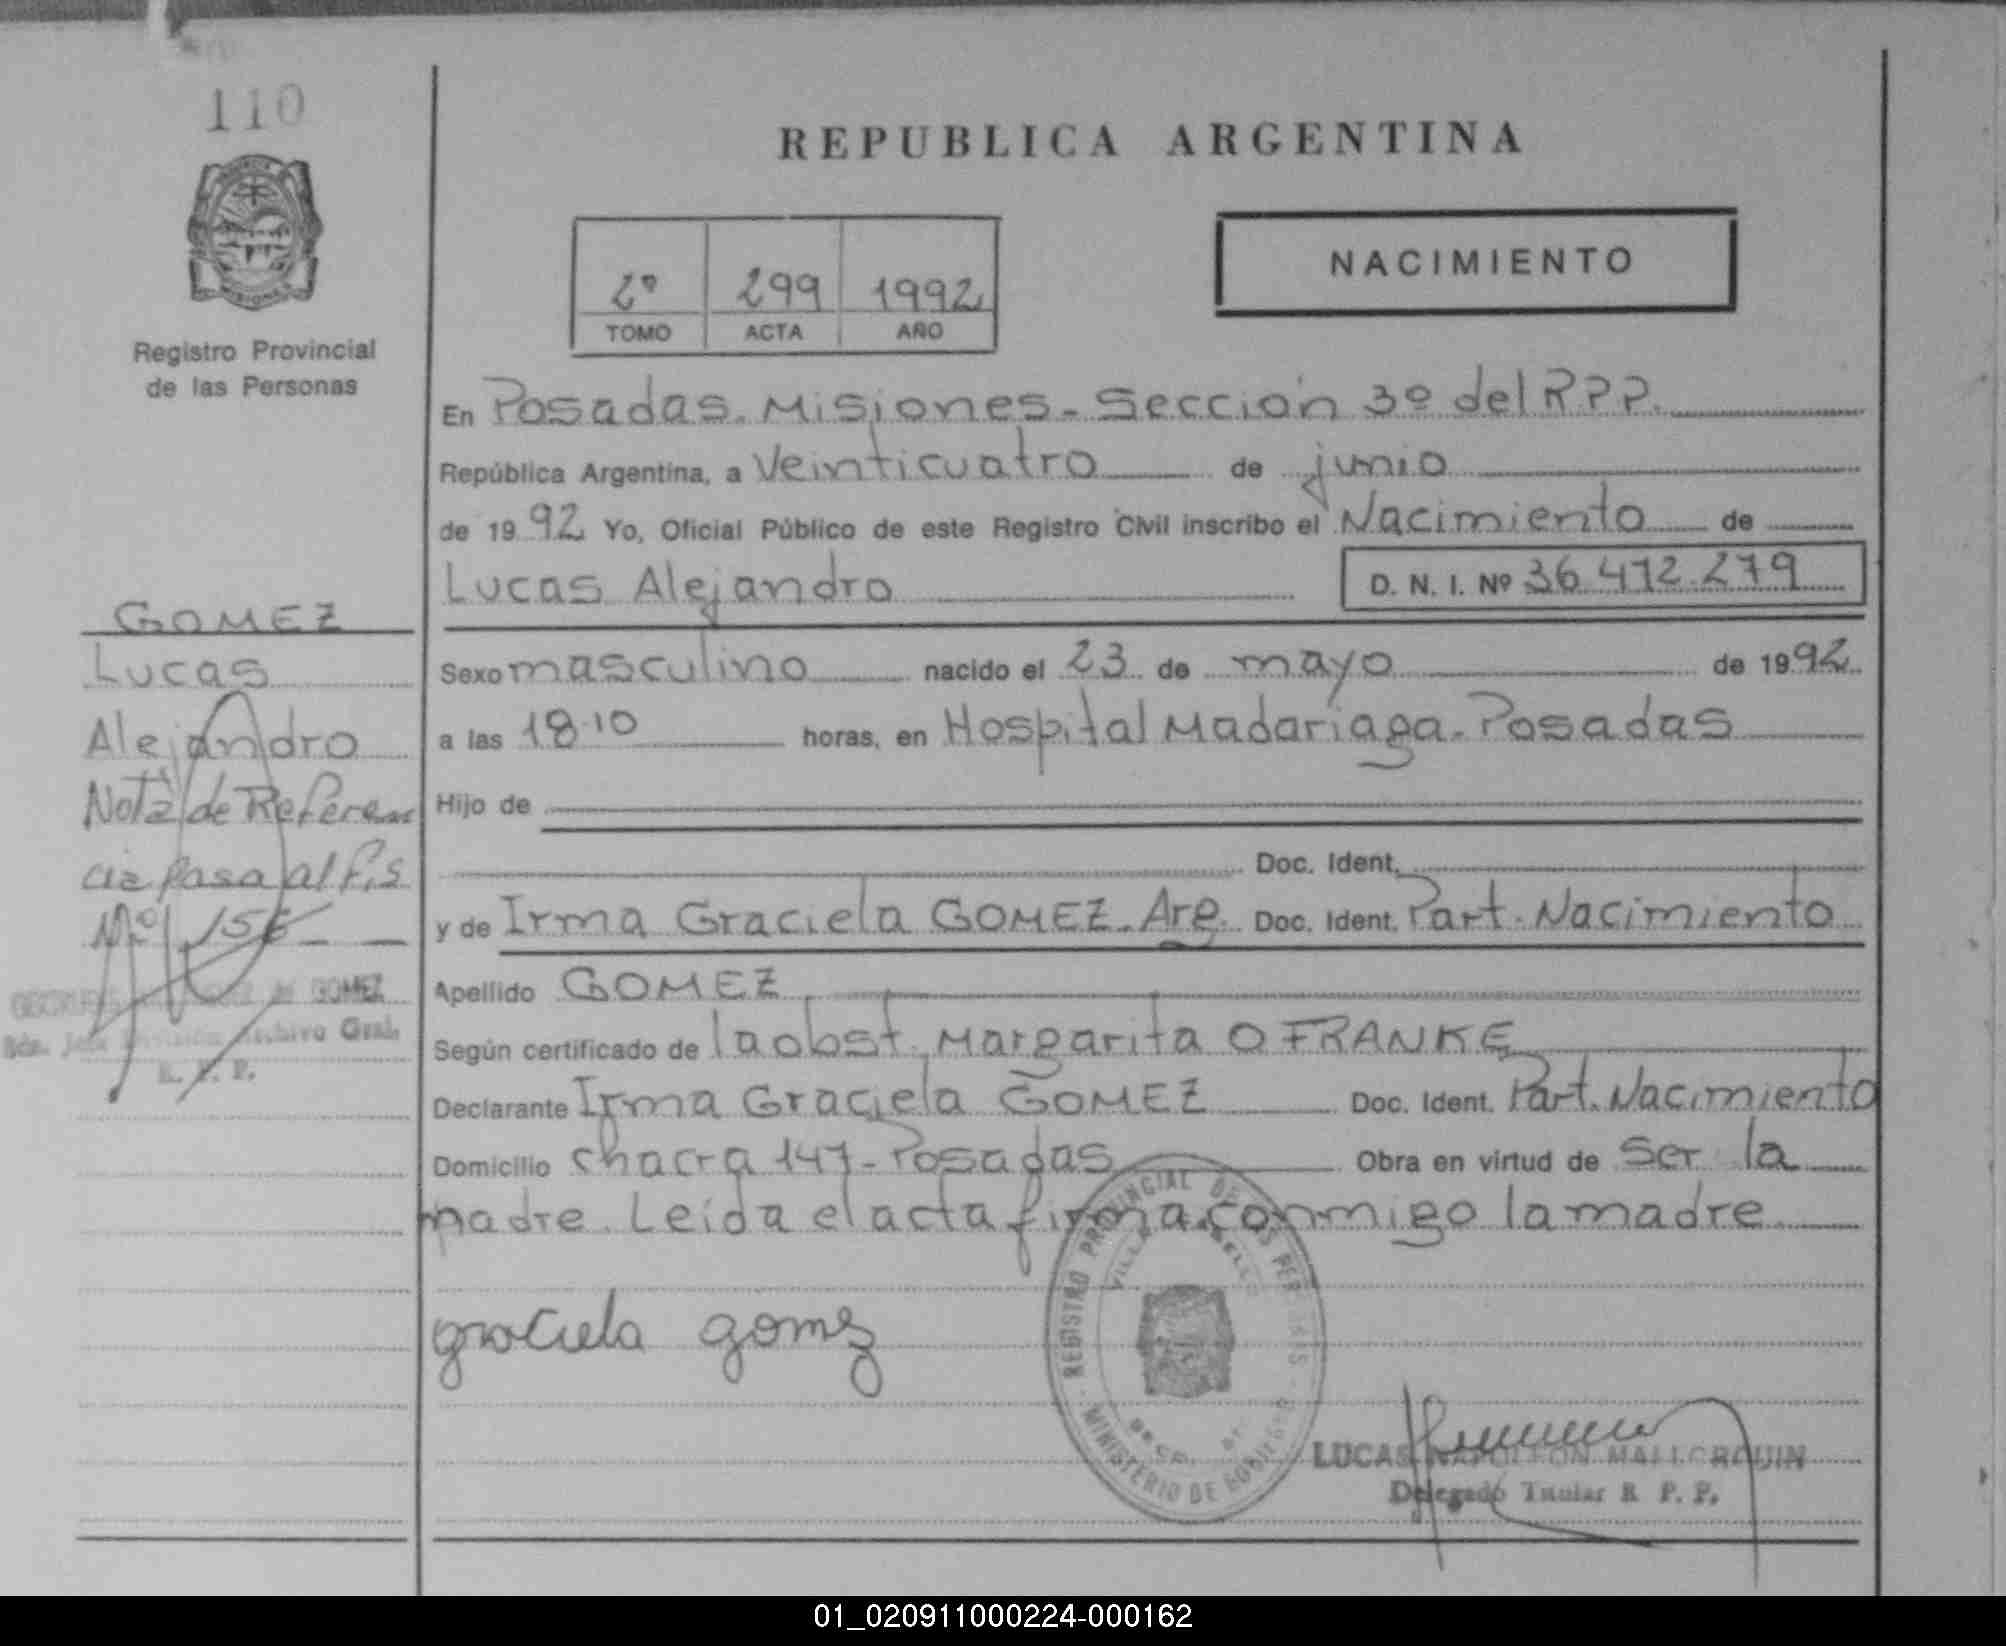 110
REPUBLICA ARGENTINA
Registro Provincial
de las Personas
2º 299 1992
TOMO ACTA AÑO
NACIMIENTO
En Posadas. Misiones - Sección 3º del R.P.P.
República Argentina, a Veinticuatro de junio
de 1992 Yo, Oficial Público de este Registro Civil inscribo el Nacimiento de
Lucas Alejandro D. N. I. Nº 36.472.279
Sexo masculino nacido el 23 de mayo de 1992
a las 18.10 horas, en Hospital Madariaga - Posadas
Hijo de
Doc. Ident.
y de Irma Graciela GOMEZ - Arg. Doc. Ident. Part. Nacimiento
Apellido GOMEZ
Según certificado de la obst. Margarita O FRANKE
Declarante Irma Graciela GOMEZ Doc. Ident. Part. Nacimiento
Domicilio chacra 147 - Posadas Obra en virtud de ser la
madre. Leída el acta firma conmigo la madre
graciela gomez
GOMEZ
Lucas
Alejandro
Nota de Referen
cia pasa al F.S
Nº 156
GOMEZ
Archivo Gral.
R. P. P.
REGISTRO PROVINCIAL DE LAS PERSONAS
MINISTERIO DE GOBIERNO
LUCAS NAPOLEON MALLORQUIN
Delegado Titular R P. P.
01_020911000224-000162